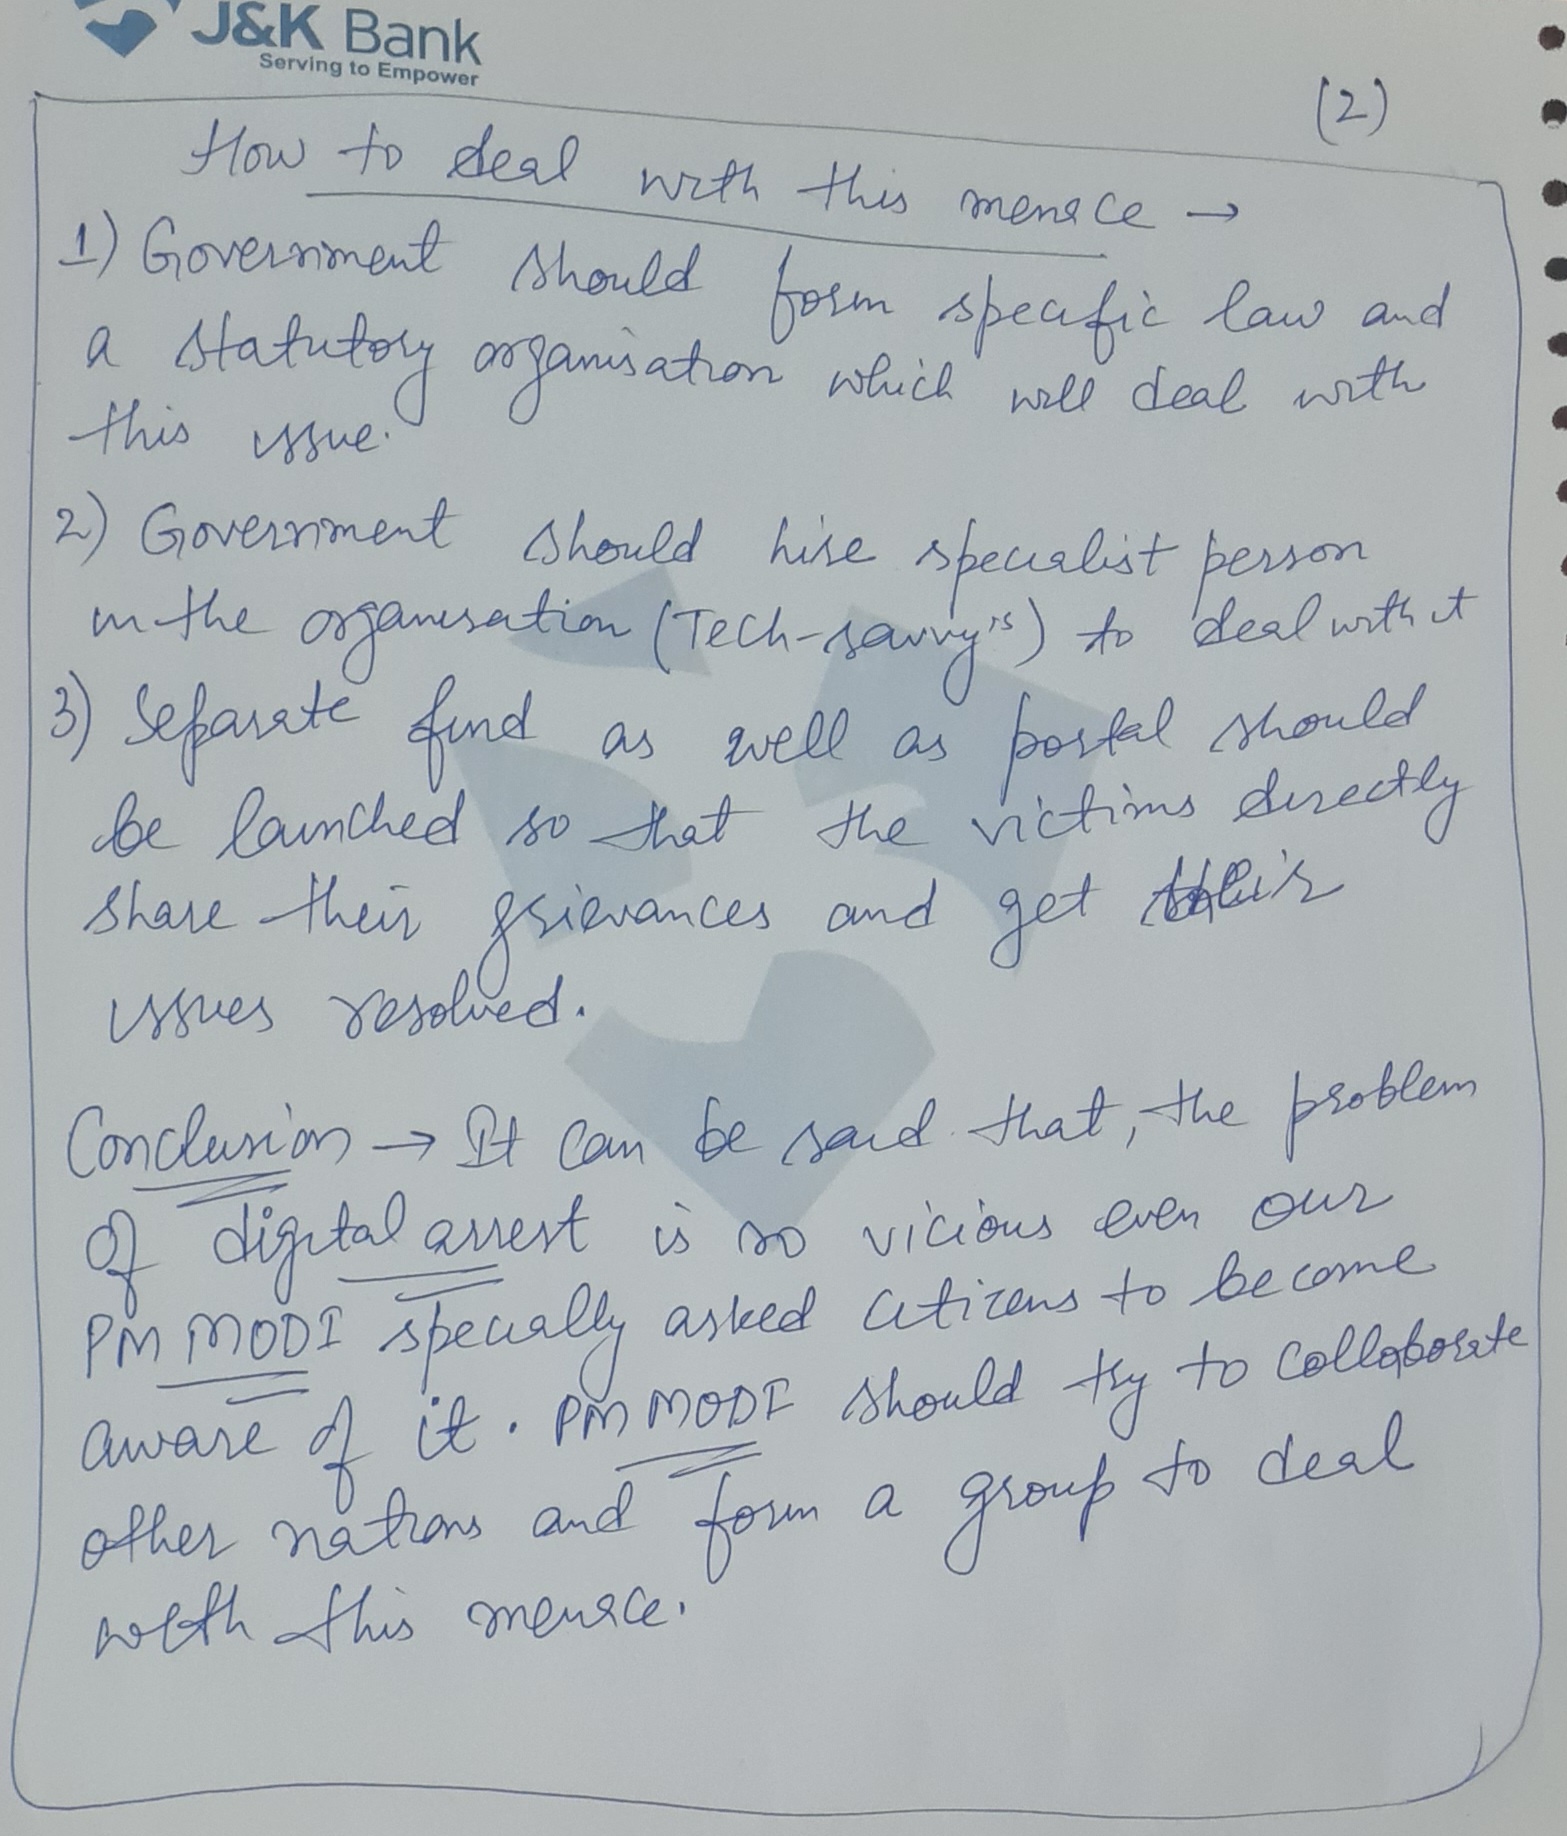 J&K Bank
Serving to Empower
(2)
How to deal with this menace →
1) Government should form specific law and
a statutory organisation which will deal with
this issue.
2) Government should hire specialist person
in the organisation (Tech-savvy's) to deal with it
3) Separate fund as well as portal should
be launched so that the victims directly
share their grievances and get their
issues resolved.
Conclusion → It can be said that, the problem
of digital arrest is so vicious even our
PM MODI specially asked citizens to become
aware of it. PM MODI should try to collaborate
other nations and form a group to deal
with this menace.